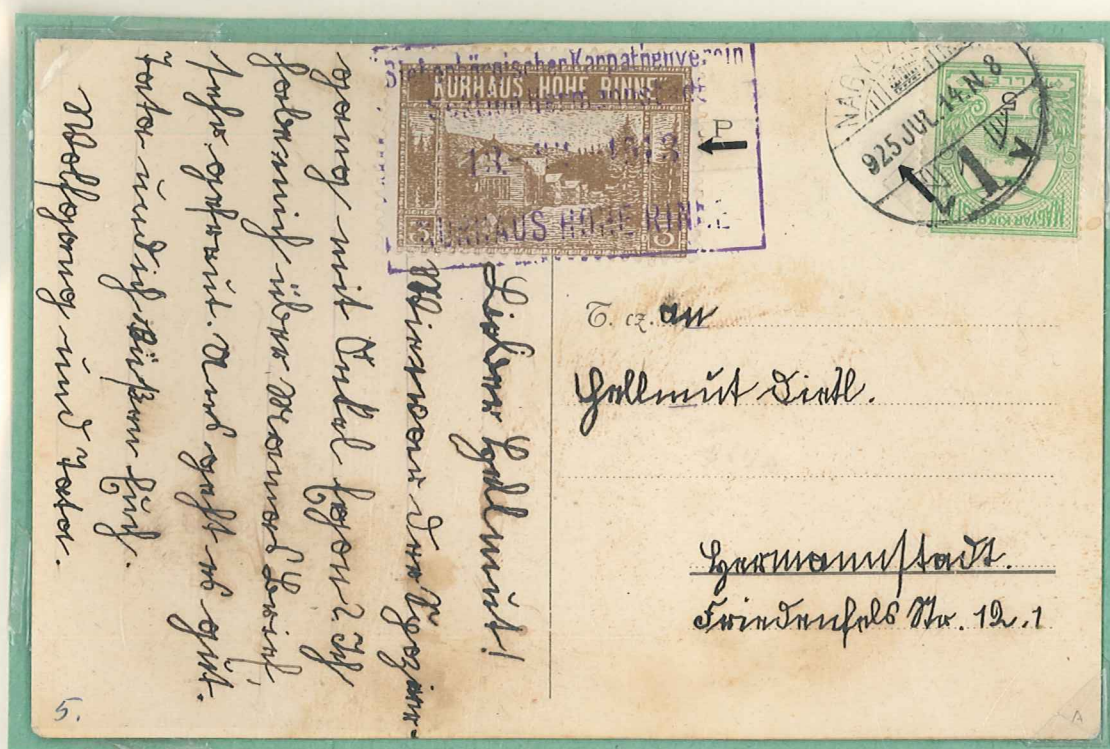 Siebenbürgischer Karpathenverein
KURHAUS HOHE RINNE
1918
KURHAUS HOHE RINNE
3 3
P
NAGY
925 JUL. 14. N 8
1
MAGYAR KIR.
T. cz. an
Hellmut Dietl.
Hermannstadt.
Friedenfels Str. 12.1
Lieber Hellmut!
Wie war der Spazier-
gang mit Onkel schon? Ich
habe mich über Mamas Brief,
sehr gefreut. Uns geht es gut.
Vater und ich Küßen Euch.
Wolfgang und Vater.
5.
A